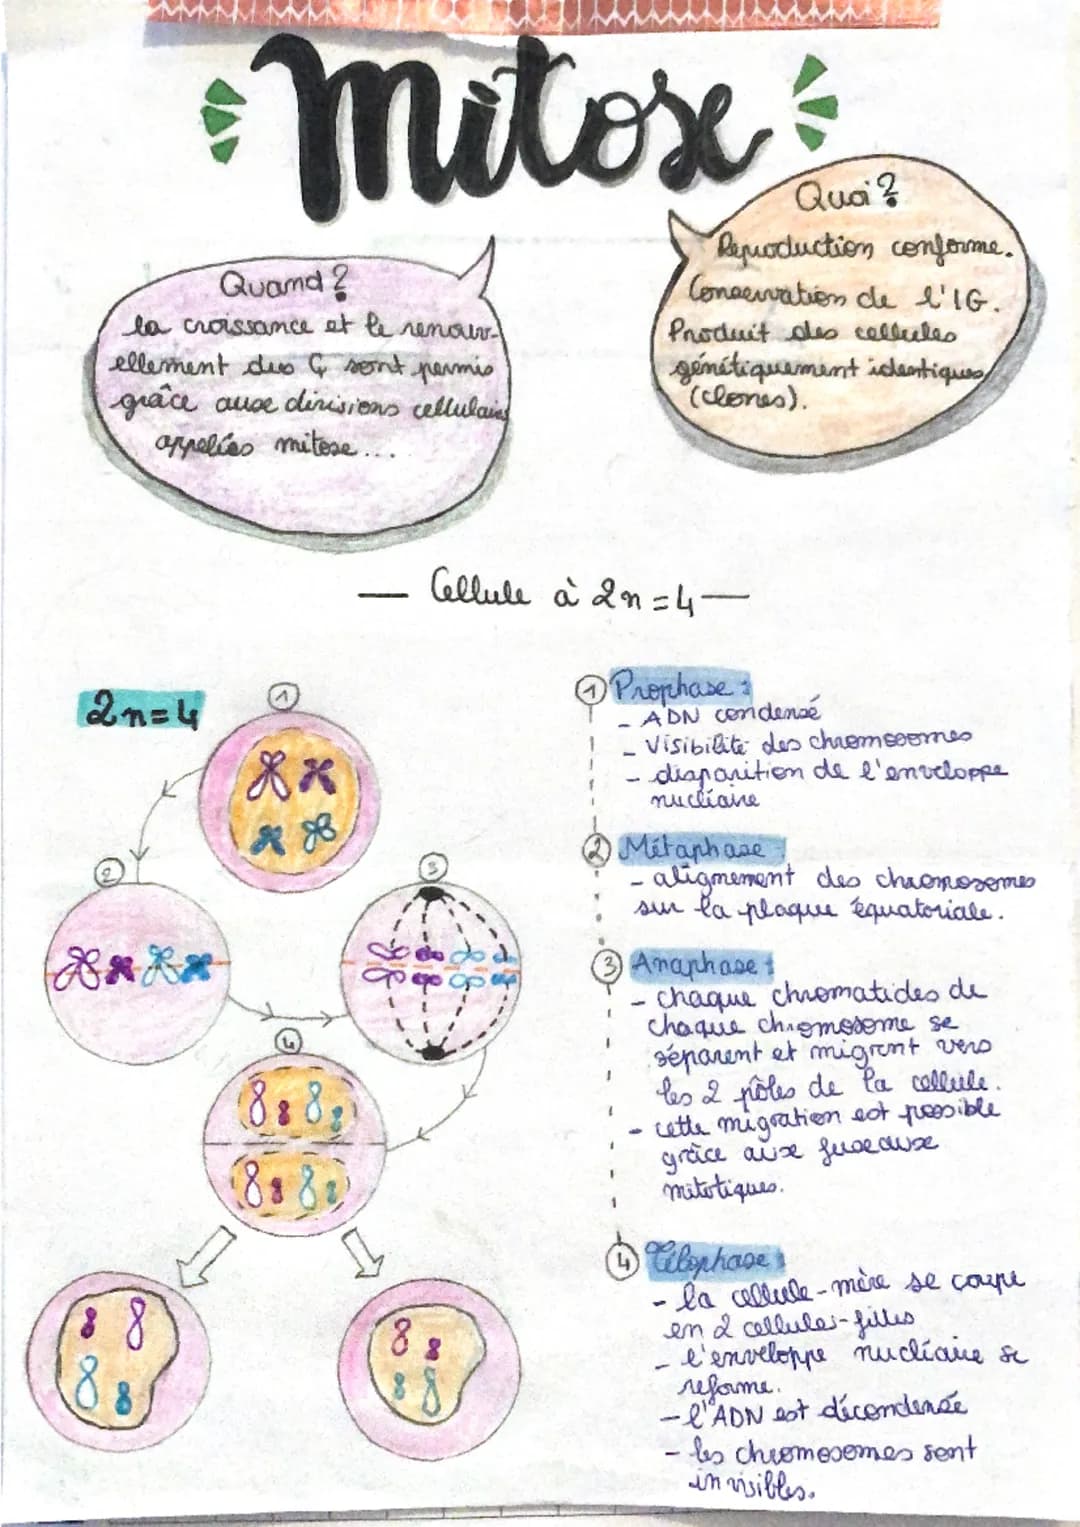 Mitose
Quoi ?
Reproduction conforme.
Conservation de l'IG.
Produit des cellules
génétiquement identiques
(clones).
Quand ?
la croissance et le renouv-
ellement des Ç sont permis
grâce aux divisions cellulaires
appelées mitose...
— Cellule à 2n=4 —
2n=4
1
2
3
4
1 Prophase :
- ADN condensé
- Visibilité des chromosomes
- disparition de l'enveloppe
nucléaire
2 Métaphase
- alignement des chromosomes
sur la plaque équatoriale.
3 Anaphase :
- chaque chromatides de
chaque chromosome se
séparent et migrent vers
les 2 pôles de la cellule.
- cette migration est possible
grâce aux fuseaux
mitotiques.
4 Télophase :
- la cellule-mère se coupe
en 2 cellules-filles
- l'enveloppe nucléaire se
reforme.
- l'ADN est décondensé
- les chromosomes sont
invisibles.